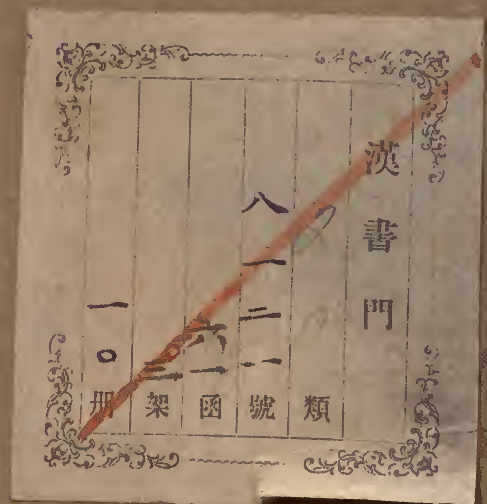 漢書門
類
八一二一號
六一函
三架
一〇冊